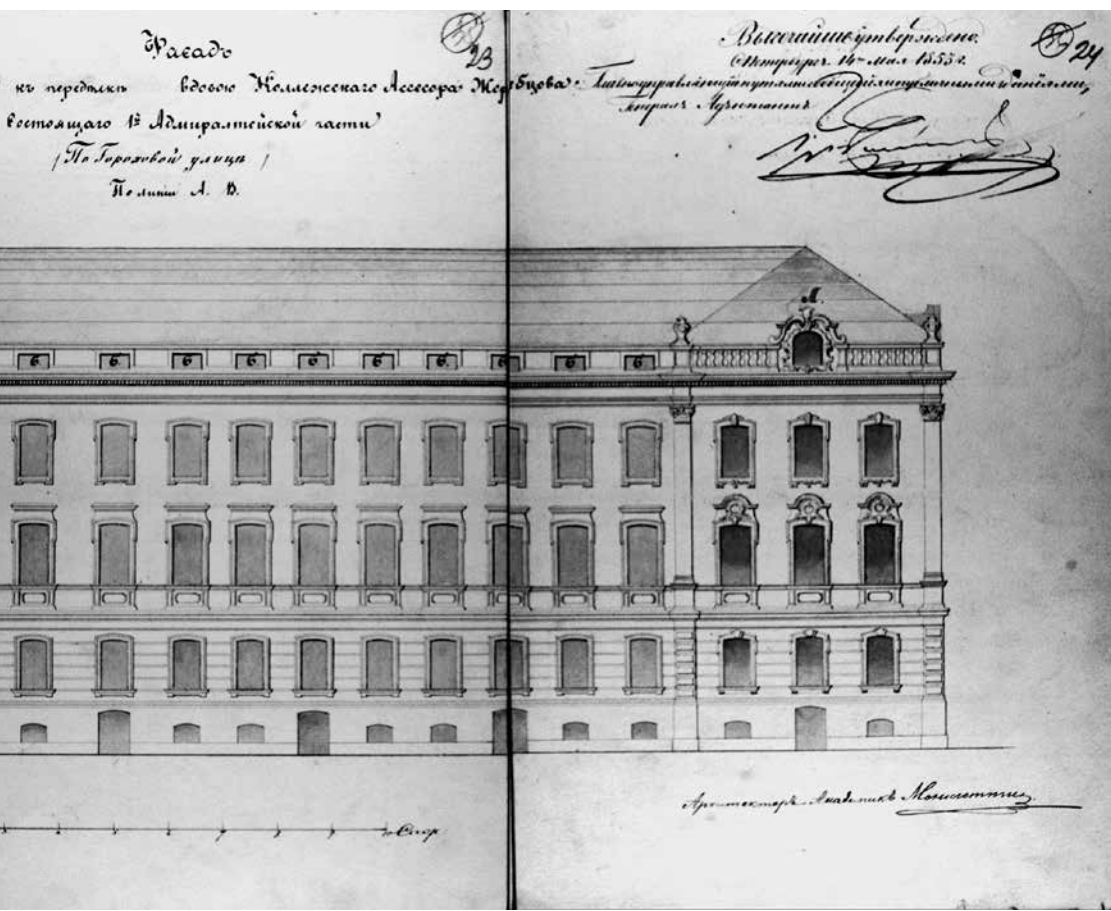 Фасадъ
къ передѣлкѣ вдовою Коллежскаго Ассесора Жеребцова
состоящаго 1й Адмиралтейской части
/ По Гороховой улицѣ /
По линіи А. В.
23
Высочайше утверждено.
С. Петербургъ. 14го Мая 1853 г.
Главноуправляющій путями сообщенія и публичными зданіями,
Генералъ Адъютантъ
24
А.
6. 6. 6. 6. 6. 6. 6. 6. 6. 6.
Архитекторъ Академикъ Монигетти
10 Саж.